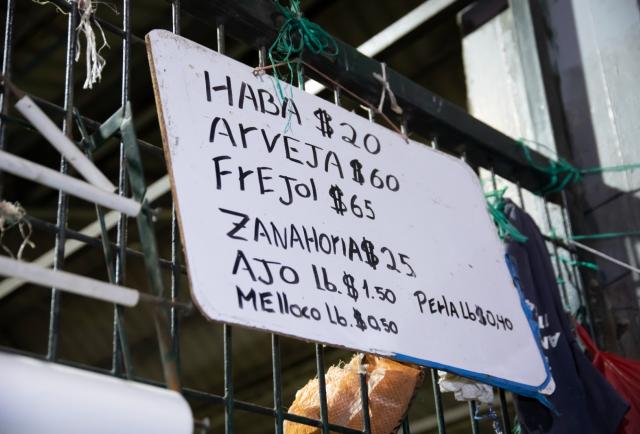 HABA $20
ArVEJA $60
FrEJol $65
ZANAHoriA $25
AJO Lb. $1.50
MElloco Lb. $0.50 PerlA Lb $0,40